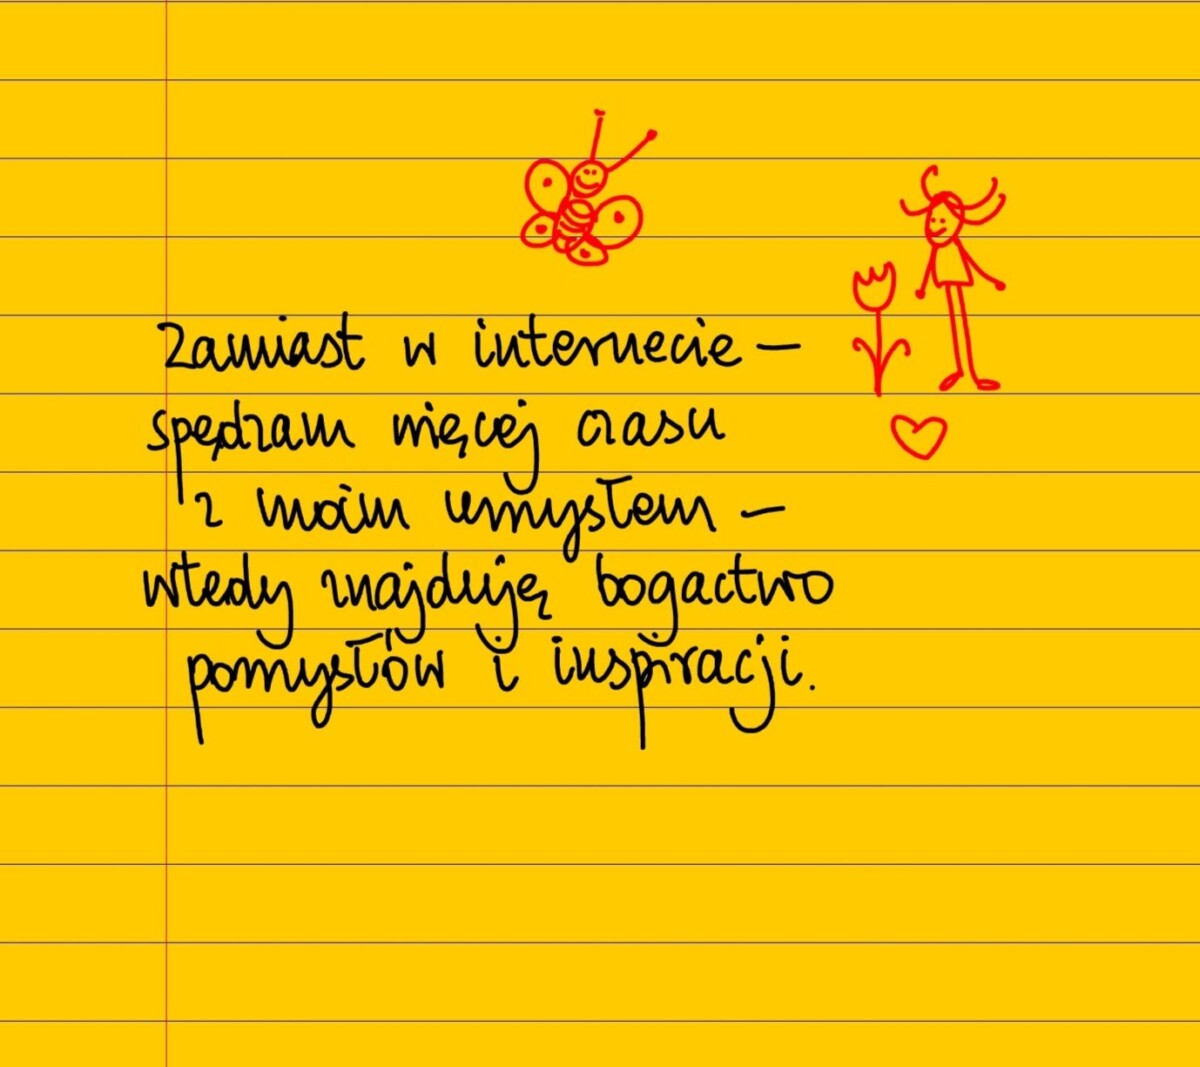 Zamiast w internecie –
spędzam więcej czasu
z moim umysłem –
wtedy znajduję bogactwo
pomysłów i inspiracji.